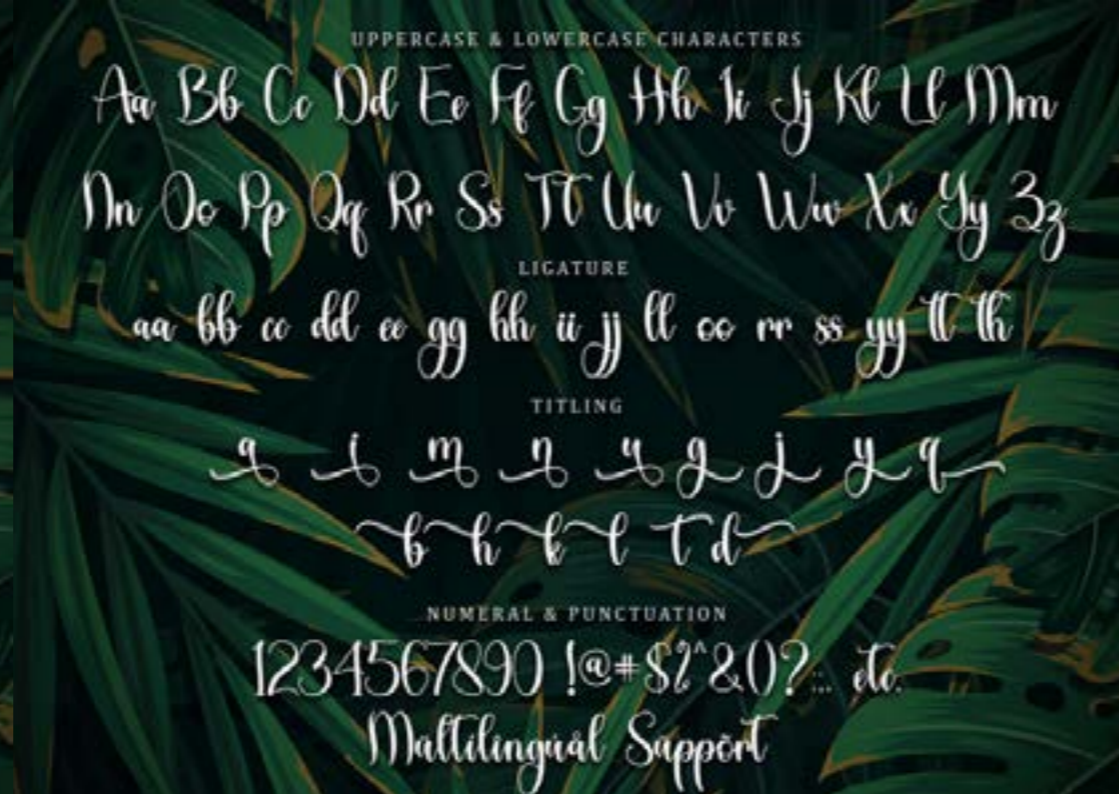 UPPERCASE & LOWERCASE CHARACTERS
Aa Bb Cc Dd Ee Ff Gg Hh Ii Jj Kk Ll Mm
Nn Oo Pp Qq Rr Ss Tt Uu Vv Ww Xx Yy Zz
LIGATURE
aa bb cc dd ee gg hh ii jj ll oo rr ss yy tt th
TITLING
a i m n u g j y q
b h k l t d
NUMERAL & PUNCTUATION
1234567890 !@#$%^&()?:;. etc.
Multilinguál Sùppõrt